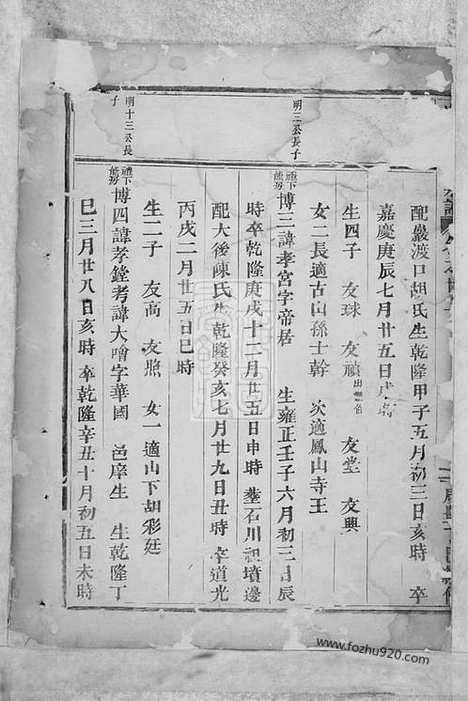 配嚴渡口胡氏生乾隆甲子五月初三日亥時 卒
嘉慶庚辰七月廿五日戌時
生四子 友球 友頏出繼 友堂 友興
女二長適古山孫士幹 次適鳳山寺王
明三公長子
禮下能房
博三諱孝宮字帝居 生雍正壬子六月初三日辰
時卒乾隆庚戌十二月廿五日申時 塟石川祖墳邊
配大後陳氏生乾隆癸亥七月廿九日丑時 卒道光
丙戌二月廿五日巳時
生二子 友高 友照 女一適山下胡彩廷
明十三公長子
禮下能房
博四諱孝鏜考諱大噲字華國 邑庠生 生乾隆丁
巳三月廿八日亥時 卒乾隆辛丑十月初五日未時
www.fozhu920.com